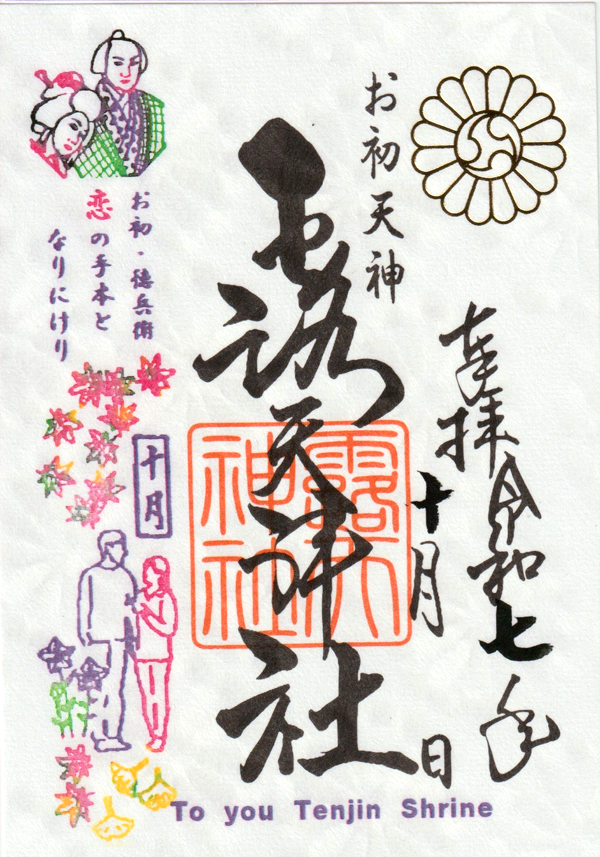 奉拝 令和七年
十月
日
お初天神
露天神社
露天
神社
お初・徳兵衛
恋の手本と
なりにけり
十月
To you Tenjin Shrine